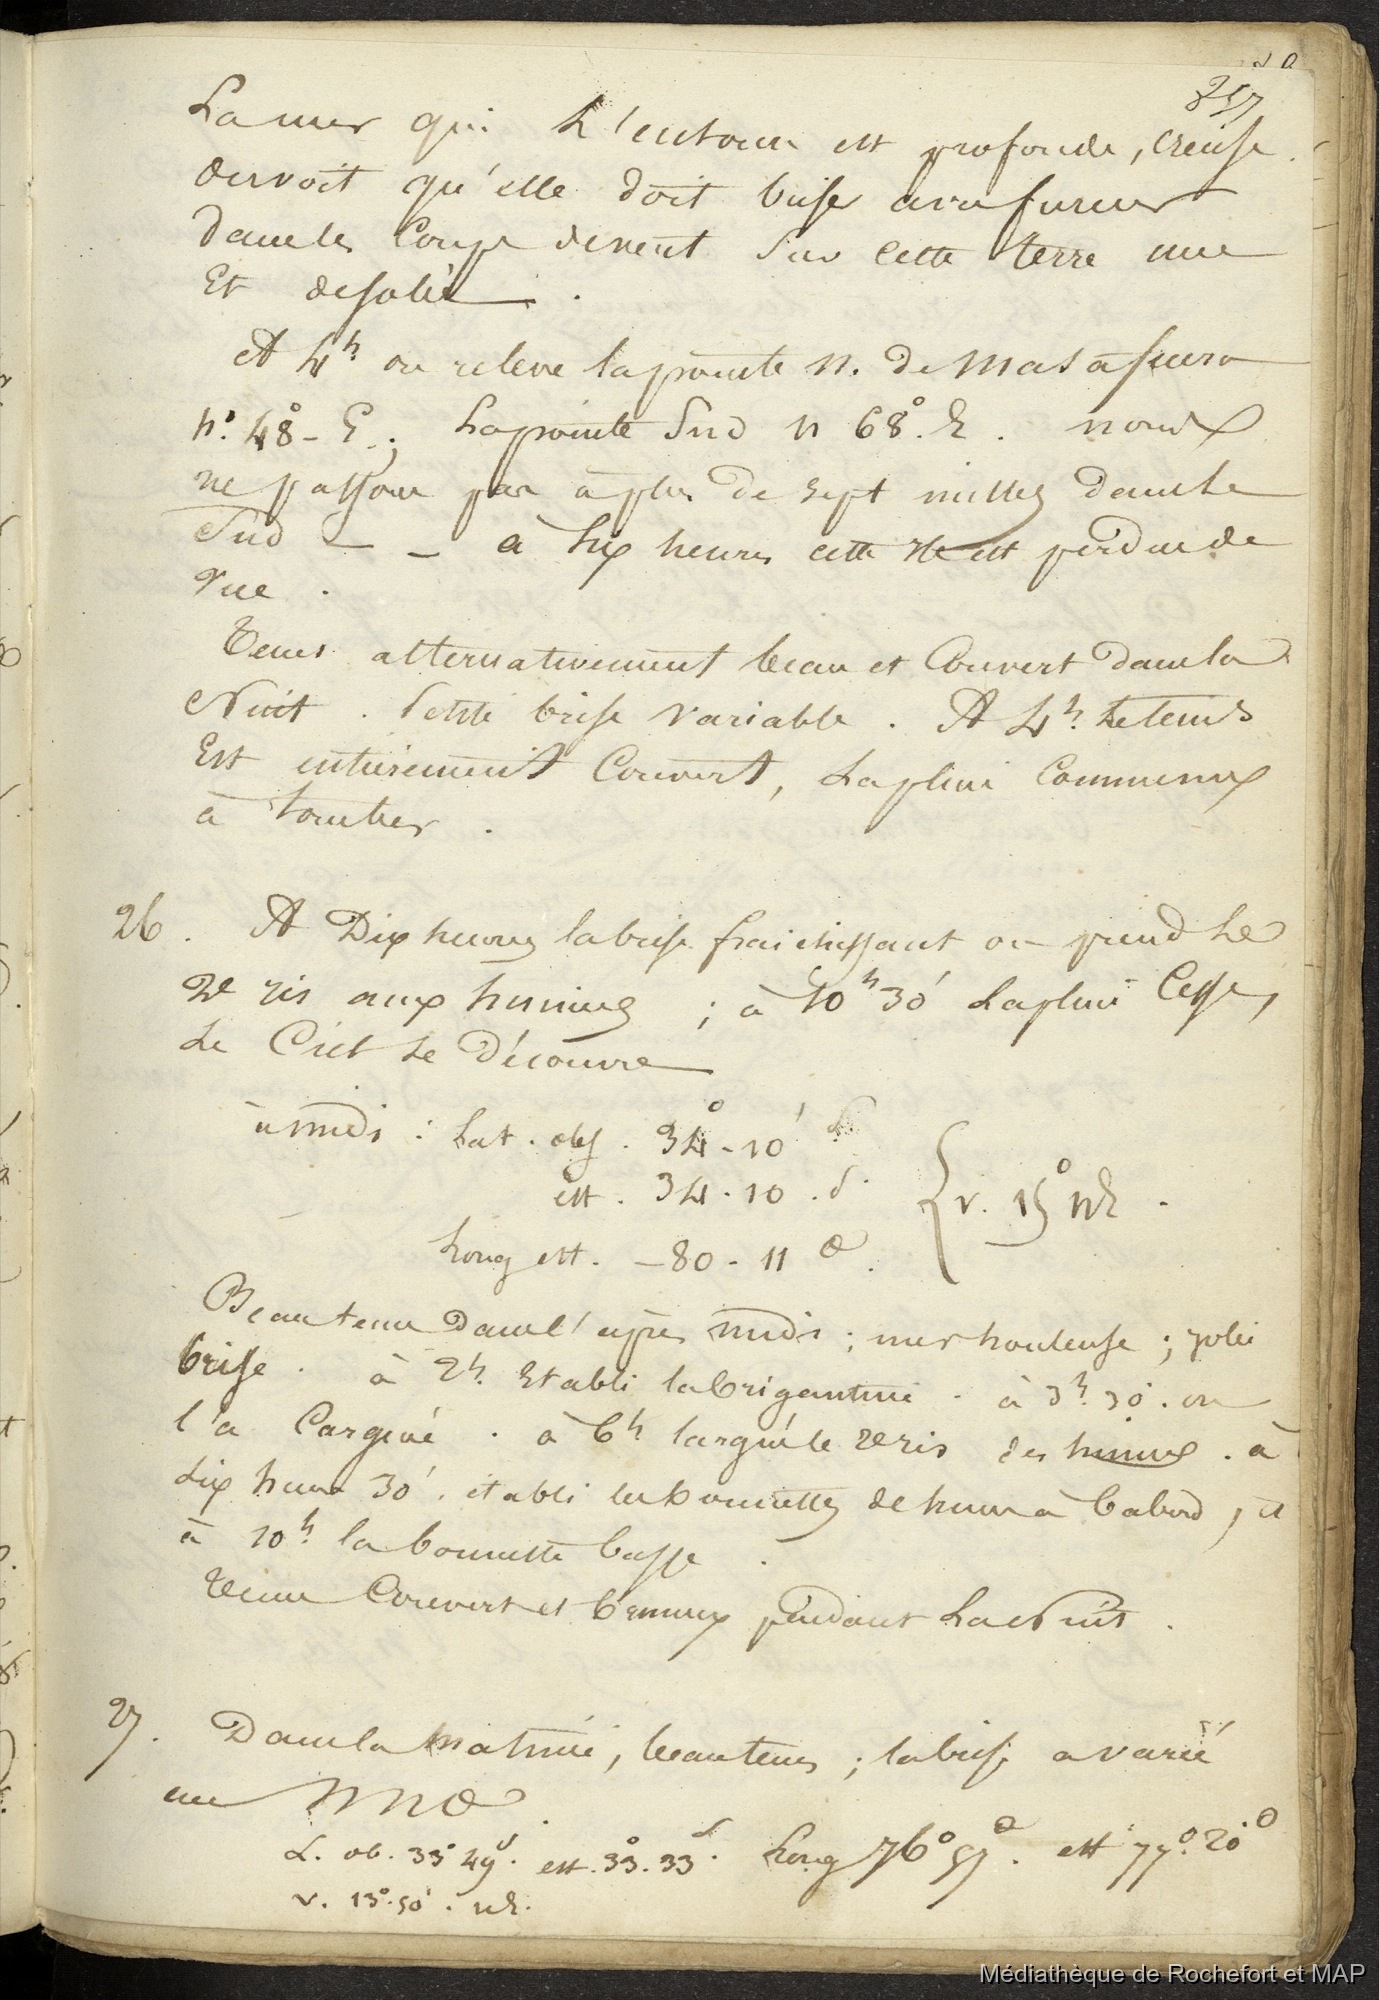 257
La mer qui l'entoure est profonde, creuse
on voit qu'elle doit briser avec fureur
dans les coups de vent sur cette terre nue
Et desolée.
A 4h on releve la pointe N. de Masafuera
N. 48° E; la pointe Sud N 68° E. nous
ne passons pas à plus de sept milles dans le
Sud — à six heures cette île est perdue de
vue.
Tems alternativement beau et couvert dans la
Nuit. Petite brise variable. A 4h. le tems
Est entièrement couvert, la pluie commence
à tomber.
26. A Dix heures la brise fraichissant on prend le
2e ris aux huniers; à 10h 30' la pluie cesse,
Le Ciel se découvre
à midi: Lat. obs. 34°-10' S
est. 34-10. S.
Long est. -80-11 O. { v. 15° NE.
Beau tems dans l'après midi; mer houleuse; jolie
brise. à 2h. Etabli la brigantine. à 3h. 30'. on
l'a carguée. à 6h largué le 2e ris des huniers. à
six heures 30'. établi les bonnettes de hune à babord, et
à 10h. la bonnette basse.
Tems Couvert et brumeux pendant la Nuit.
27. Dans la matinée, beau tems; la brise a varié
au NNO.
L. ob. 33° 49' S. est. 33°. 33' S. Long 76° 57' O. est 77° 20' O
v. 13°. 50'. NE.
Médiathèque de Rochefort et MAP